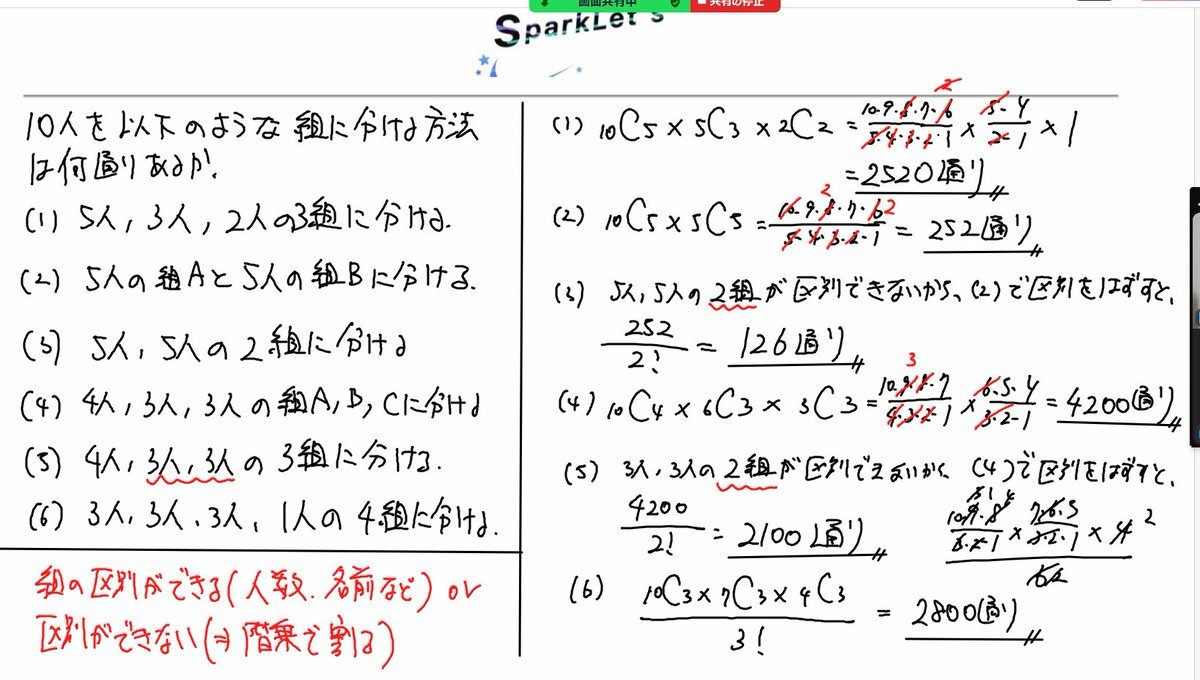 画面共有中
共有の停止
SparkLet's
10人を以下のような組に分ける方法
は何通りあるか.
(1) 5人, 3人, 2人の3組に分ける.
(2) 5人の組Aと5人の組Bに分ける.
(3) 5人, 5人の2組に分ける
(4) 4人, 3人, 3人の組A, B, Cに分ける
(5) 4人, 3人, 3人の3組に分ける.
(6) 3人, 3人, 3人, 1人の4組に分ける.
組の区別ができる(人数, 名前など) or
区別ができない(⇒階乗で割る)
(1) 10C5 × 5C3 × 2C2 = 10・9・8・7・6/5・4・3・2・1 × 5・4/2・1 × 1
2
= 2520通り
(2) 10C5 × 5C5 = 10・9・8・7・6/5・4・3・2・1 = 252通り
2 2
(3) 5人, 5人の2組が区別できないから、(2)で区別をはずすと、
252/2! = 126通り
(4) 10C4 × 6C3 × 3C3 = 10・9・8・7/4・3・2・1 × 6・5・4/3・2・1 = 4200通り
3
(5) 3人, 3人の2組が区別できないから、(4)で区別をはずすと、
4200/2! = 2100通り
(6) 10C3 × 7C3 × 4C3/3! = 2800通り